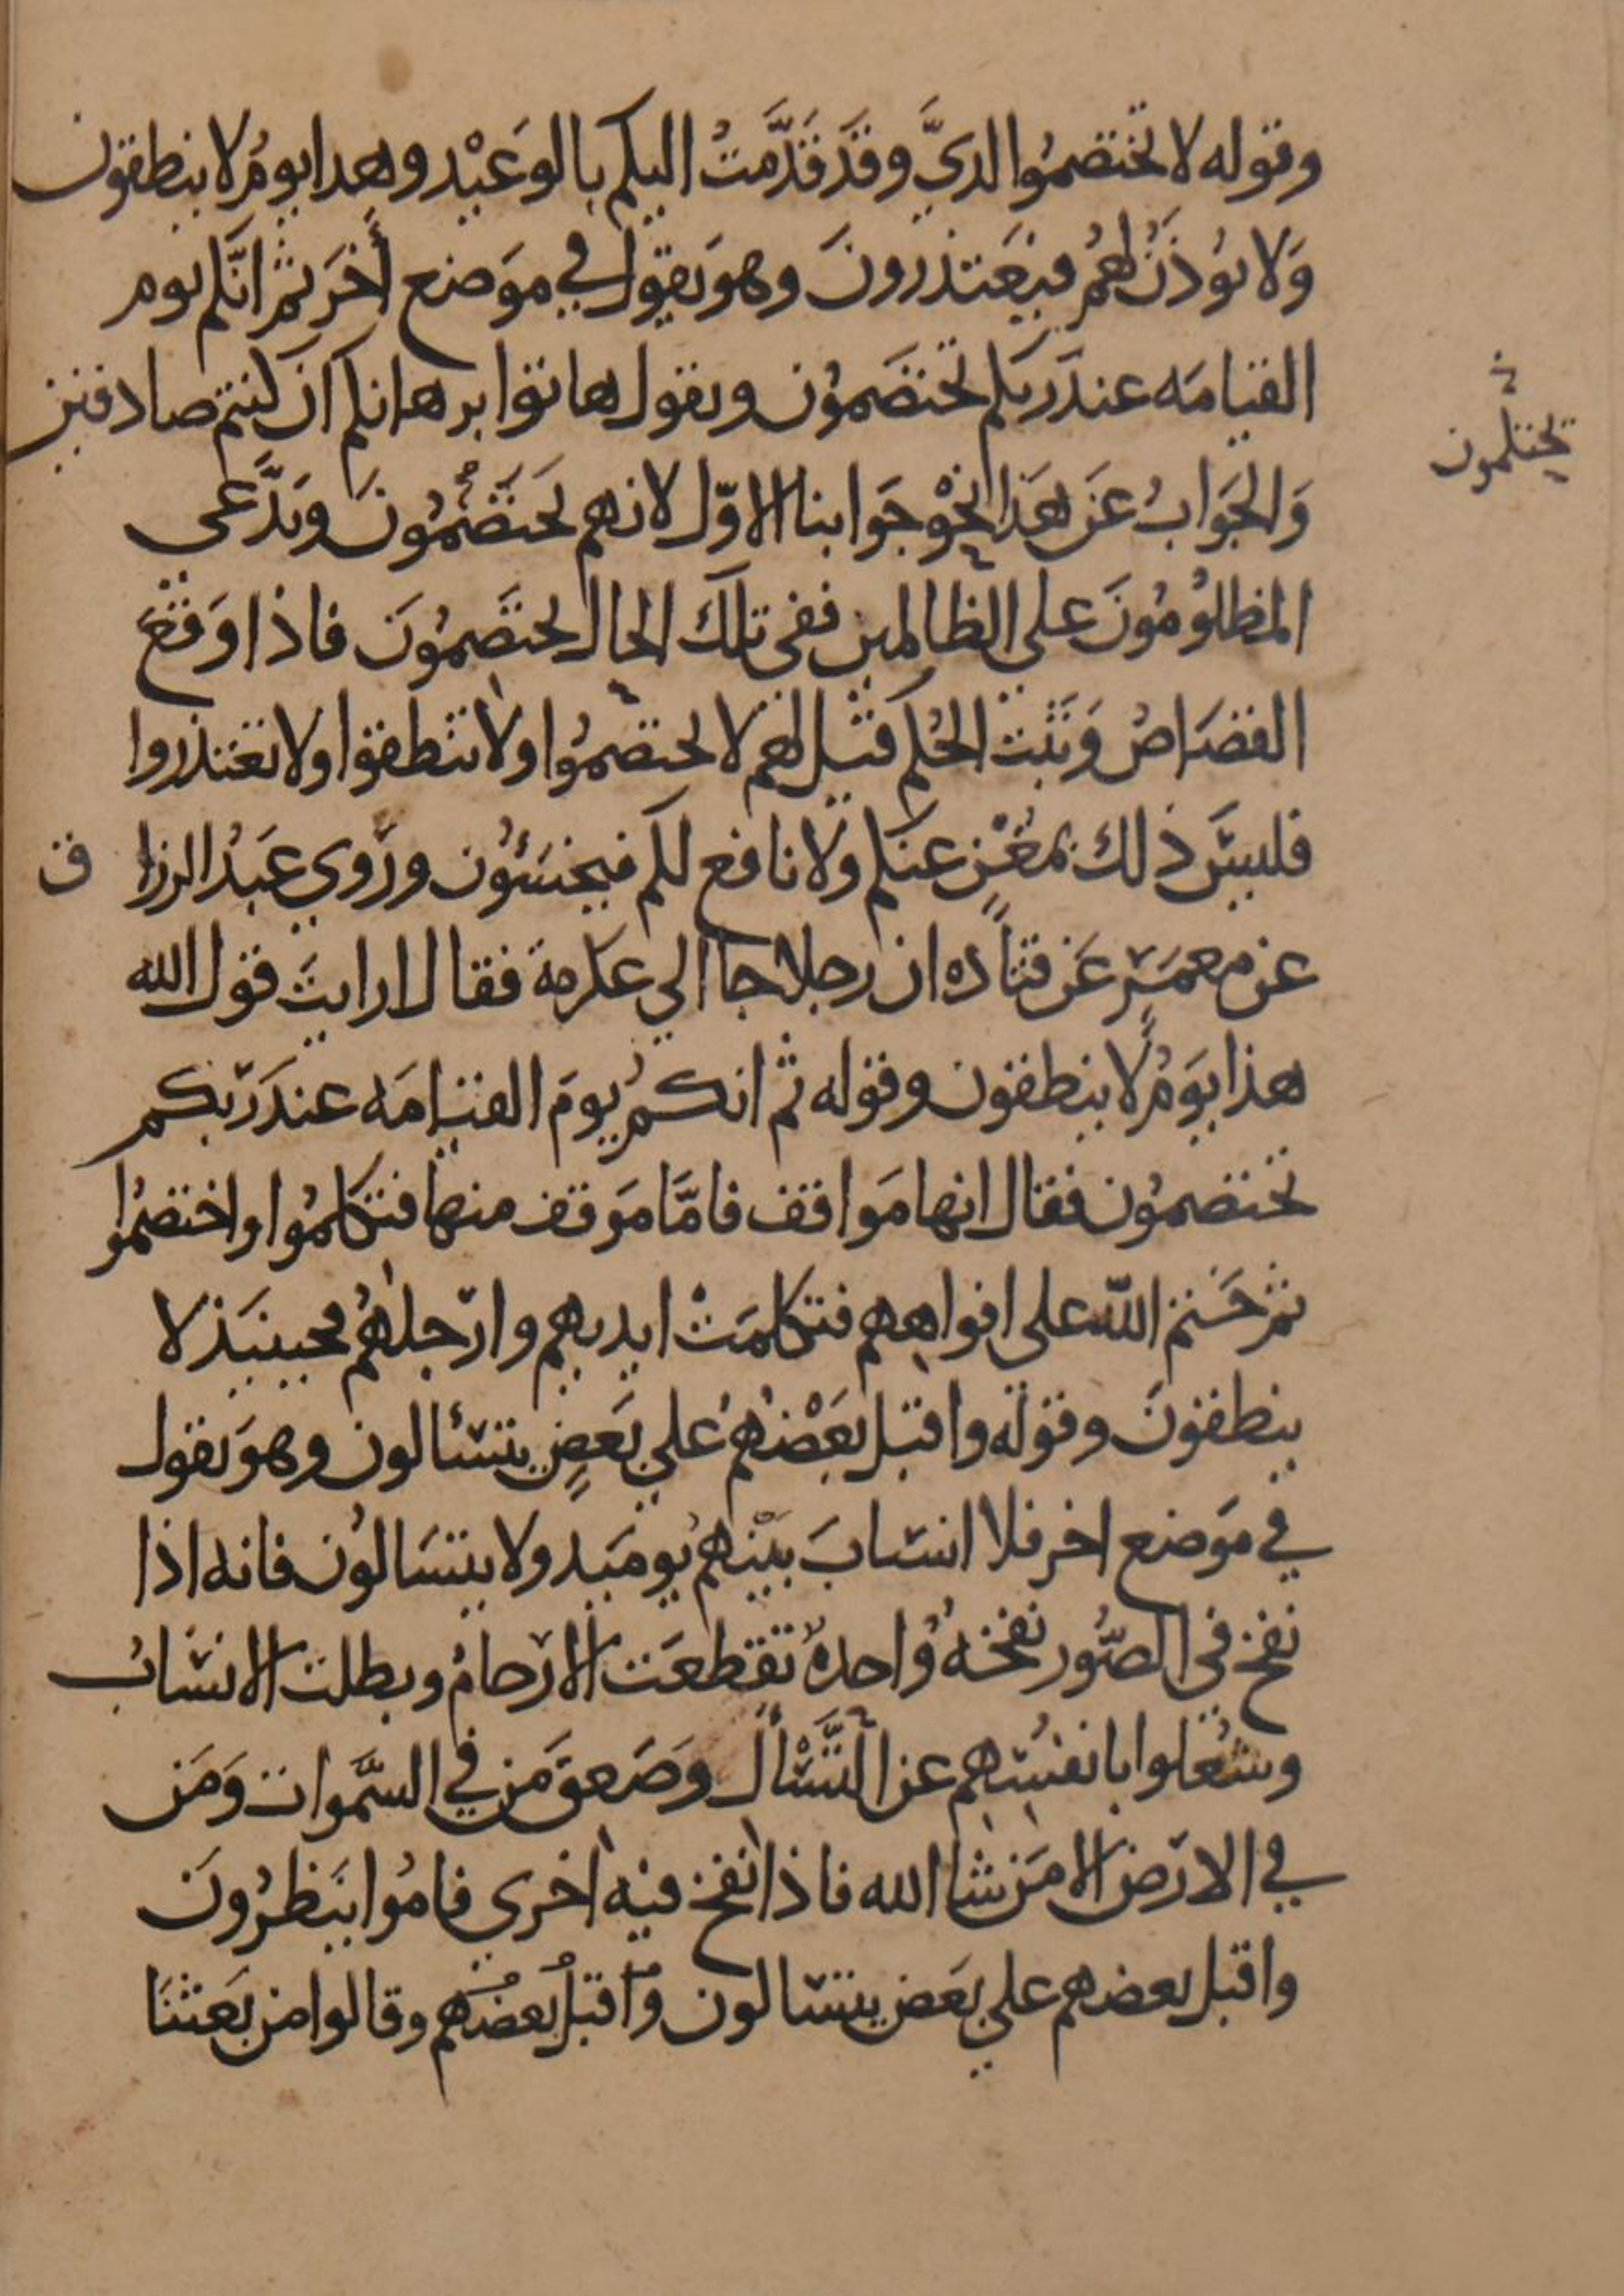 وقوله لا تختصموا لديَّ وقَد قَدَّمتُ اليكم بالوَعيْد وهدا يومُ لا ينطقون
وَلا يُوذَنُ لهُم فيَعتذرونَ وهوَ يقول في موَضع أخَر ثم انَّكم يوم
القيامَه عندَ ربكم تختصَمُون ويقول هاتوا برهانكم ان كنتم صادقين
وَالجَوابُ عَن هَذا النحْو جَوابنا الاوّل لانهم يَختَصَمُونَ ويَدَّعي
المظلوُمُونَ على الظالمين ففى تلكَ الحال يختَصمُونَ فاذا وَقَعَ
القصَاصُ وَثبَت الحُكم قيل لهم لا تختصمُوا ولا تنطقوا ولا تعتذروا
فليسَ ذلك بمغْنٍ عنكم ولا نافع لكم فيخسَئوُن ورَوي عَبدُ الرزاق
عن معمَر عَن قتاده ان رجلا جا الي عكرمة فقال ارايتَ قول الله
هذا يوَمُ لا ينطقون وقوله ثم انكمُ يومَ القيامَه عندَ رَبكم
تختصمُون فقال انها مَواقف فامَّا مَوقف منها فتكلمُوا واختصمُوا
ثم خَتم اللّه على افواههم فتكلمَتْ ايديهم وارَجلهُم فحينيَذ لا
ينطقونَ وقوله واقبل بعَضْهُمُ علي بَعَضٍ يتسَألون وهوَ يقول
في مَوضع اخر فلا انسابَ بيْنهُم يومَيد ولا يتسَالوُن فانه اذا
نفخ في الصُّور نفخهُ وُاحدهٌ تقطعَت الارَحامُ وبطلت الانسَابُ
وشُغلوا بانفسُهم عن التَّسْأل وَصَعقَ مَن في السَّموات وَمَن
في الارَض الا مَن شا الله فاذا نفخ فيه اخري قامُوا ينَظرُونَ
واقبل بعضهم علي بعَض يتسَالون وُاقبلُ بعضُهم وقالوا من بَعثنَا
تختلمون